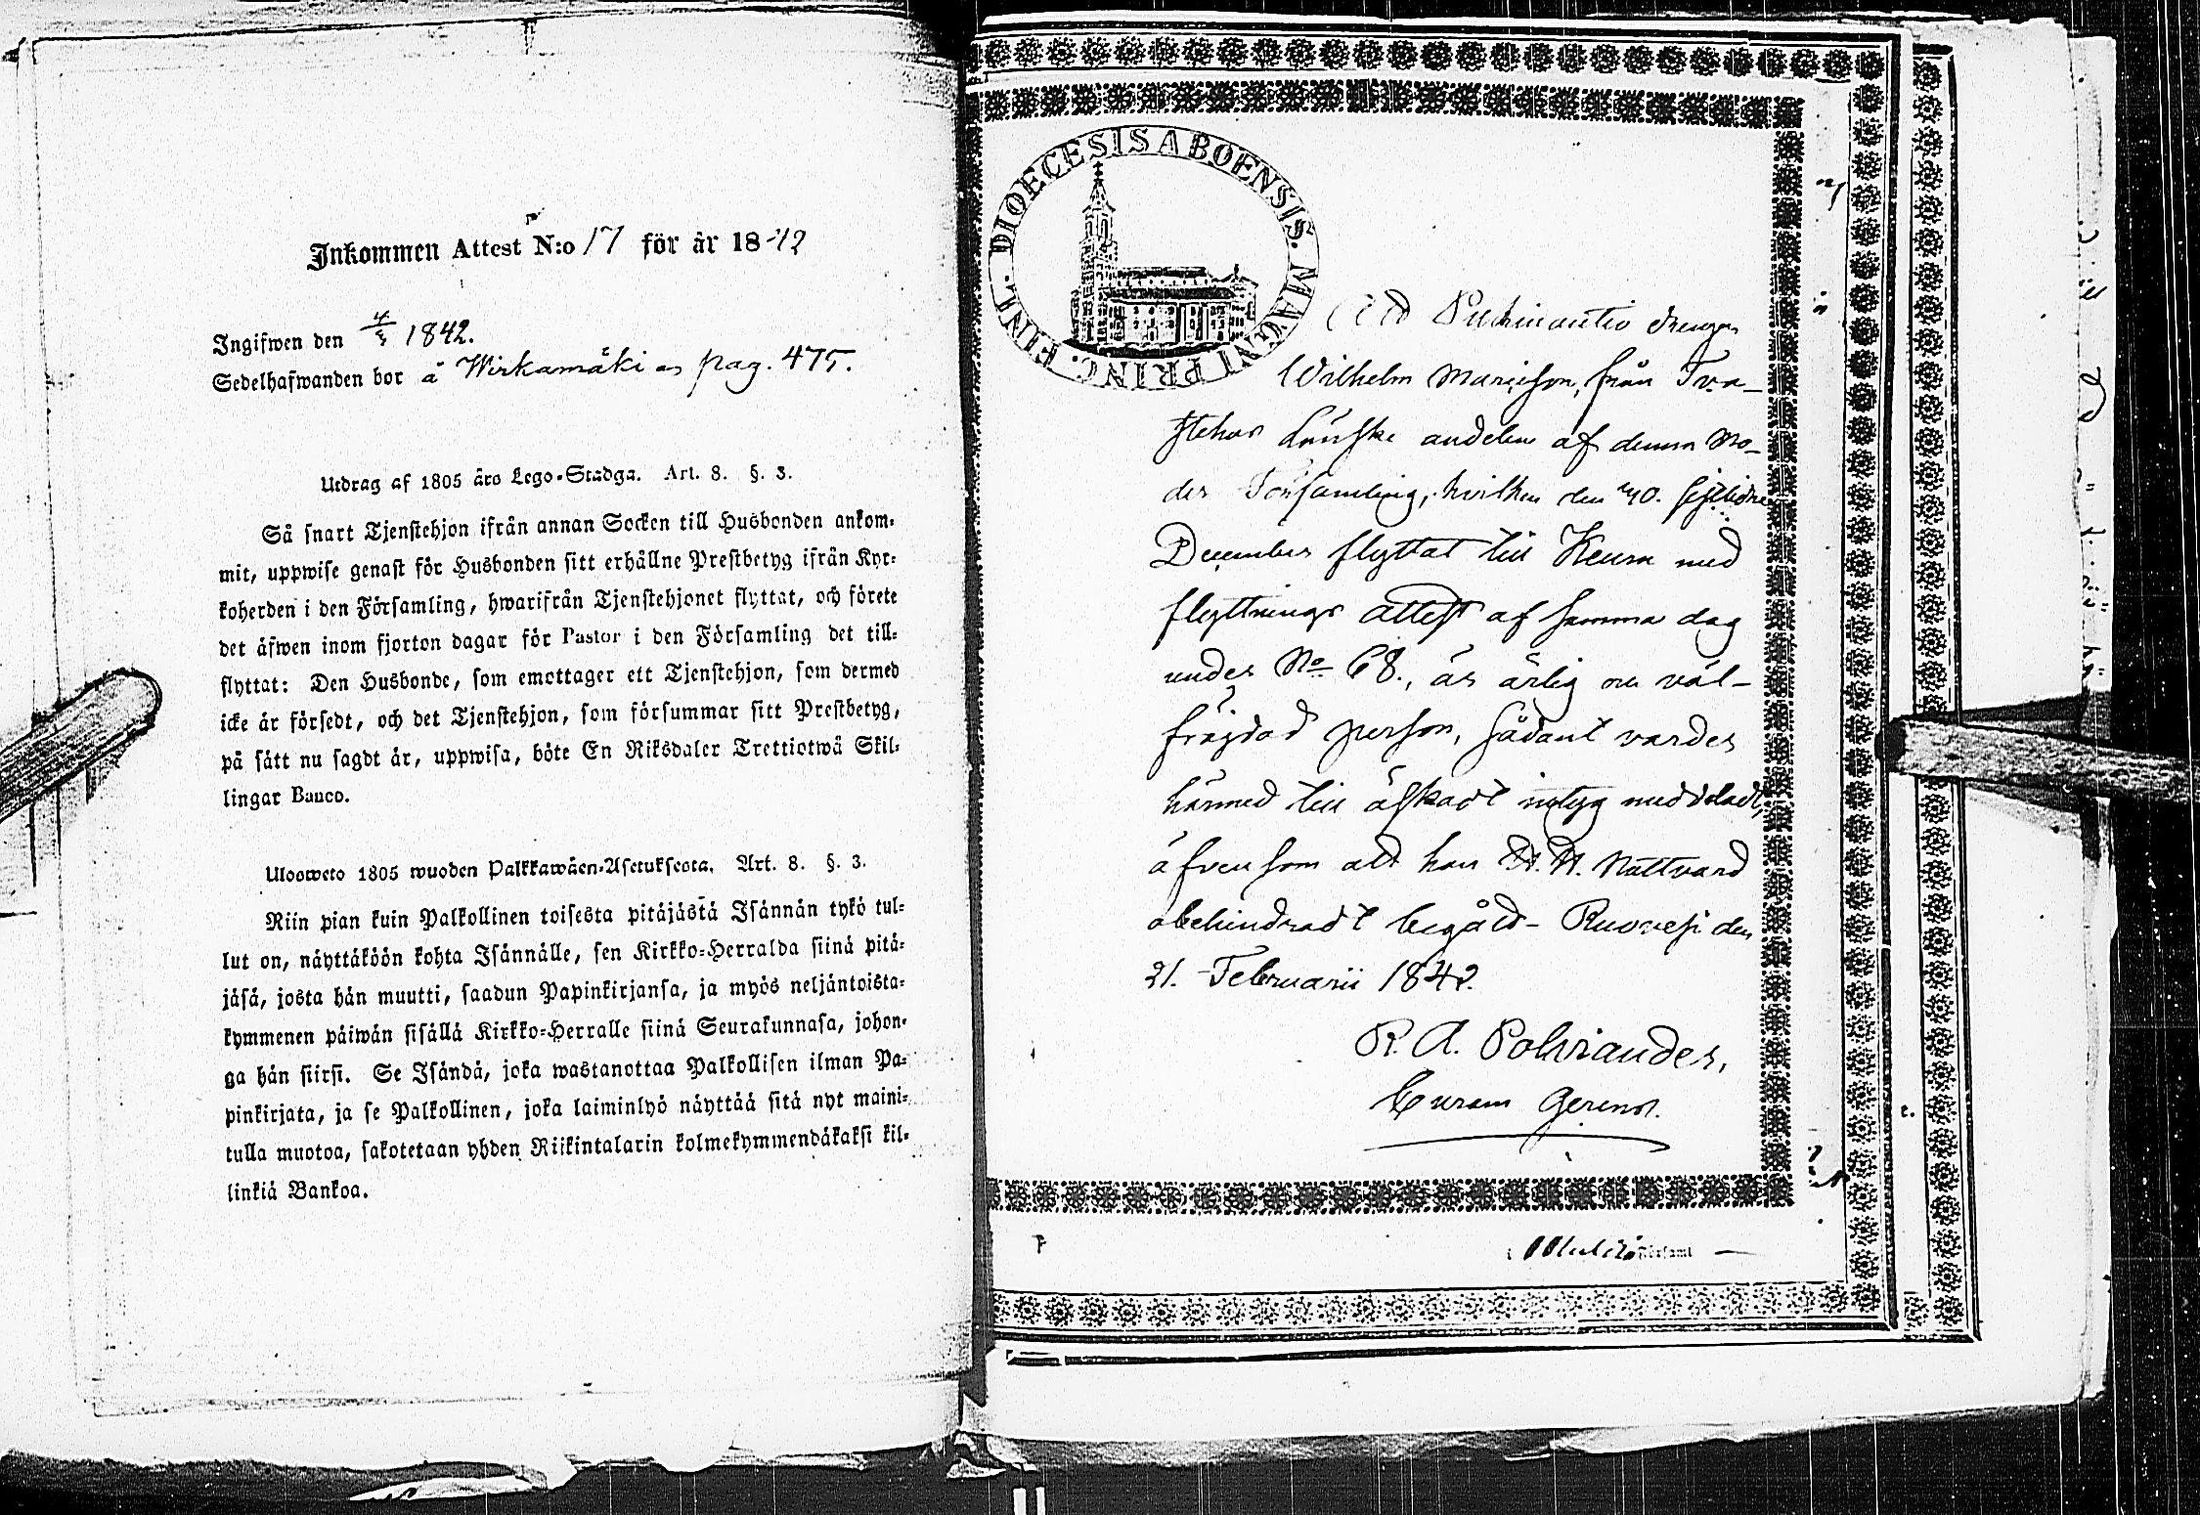 Inkommen Attest N:o 17 för år 1842
Ingifwen den 4/3 1842.
Sedelhafwanden bor å Wirkamäki pag. 475.
Utdrag af 1805 års Lego-Stadga. Art. 8. §. 3.
Så snart Tjenstehjon ifrån annan Socken till Husbonden ankom-
mit, uppwise genast för Husbonden sitt erhållne Prestbetyg ifrån Kyr-
koherden i den Församling, hwarifrån Tjenstehjonet flyttat, och förete
det äfwen inom fjorton dagar för Pastor i den Församling det till-
flyttat: Den Husbonde, som emottager ett Tjenstehjon, som dermed
icke är försedt, och det Tjenstehjon, som försummar sitt Prestbetyg,
på sätt nu sagdt är, uppwisa, böte En Riksdaler Trettiotwå Skil-
lingar Banco.
Ulosweto 1805 wuoden Palkkawäen-Asetuksesta. Art. 8. §. 3.
Niin pian kuin Palkollinen toisesta pitäjästä Isännän tykö tul-
lut on, näyttäköön kohta Isännälle, sen Kirkko-Herralda siinä pitä-
jäsä, josta hän muutti, saadun Papinkirjansa, ja myös neljäntoista-
kymmenen päiwän sisällä Kirkko-Herralle siinä Seurakunnasa, johon-
ga hän siirsi. Se Isändä, joka wastanottaa Palkollisen ilman Pa-
pinkirjata, ja se Palkollinen, joka laiminlyö näyttää sitä nyt maini-
tulla muotoa, sakotetaan yhden Riikintalarin kolmekymmendäkaksi kil-
linkiä Bankoa.
DIOECESIS ABOENSIS. MAGNI PRINC. FINL.
drengen
Wilhelm från Tva-
stehus Länske andelen af denna Mo-
der Församling, hvilken den sistlidne
December flyttat till Keuru med
flyttnings attest af samma dag
under No 68., är ärlig och väl-
frägdad person, sådant vardes
härmed till äskadt intyg meddeladt,
äfvensom att han H. H. Nattvard
obehindradt begått - Ruovesi den
21. Februarii 1842.
R. A. Polviander,
Curam Gerens.
Församl